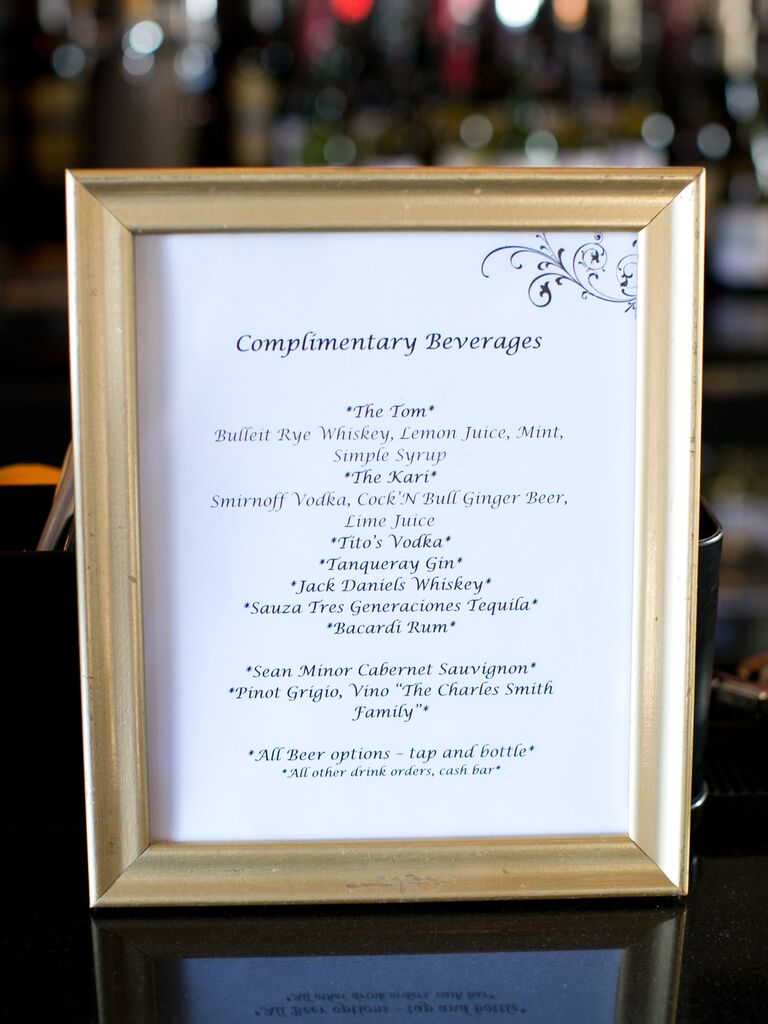 Complimentary Beverages
*The Tom*
Bulleit Rye Whiskey, Lemon Juice, Mint,
Simple Syrup
*The Kari*
Smirnoff Vodka, Cock'N Bull Ginger Beer,
Lime Juice
*Tito's Vodka*
*Tanqueray Gin*
*Jack Daniels Whiskey*
*Sauza Tres Generaciones Tequila*
*Bacardi Rum*
*Sean Minor Cabernet Sauvignon*
*Pinot Grigio, Vino “The Charles Smith
Family”*
*All Beer options – tap and bottle*
*All other drink orders, cash bar*